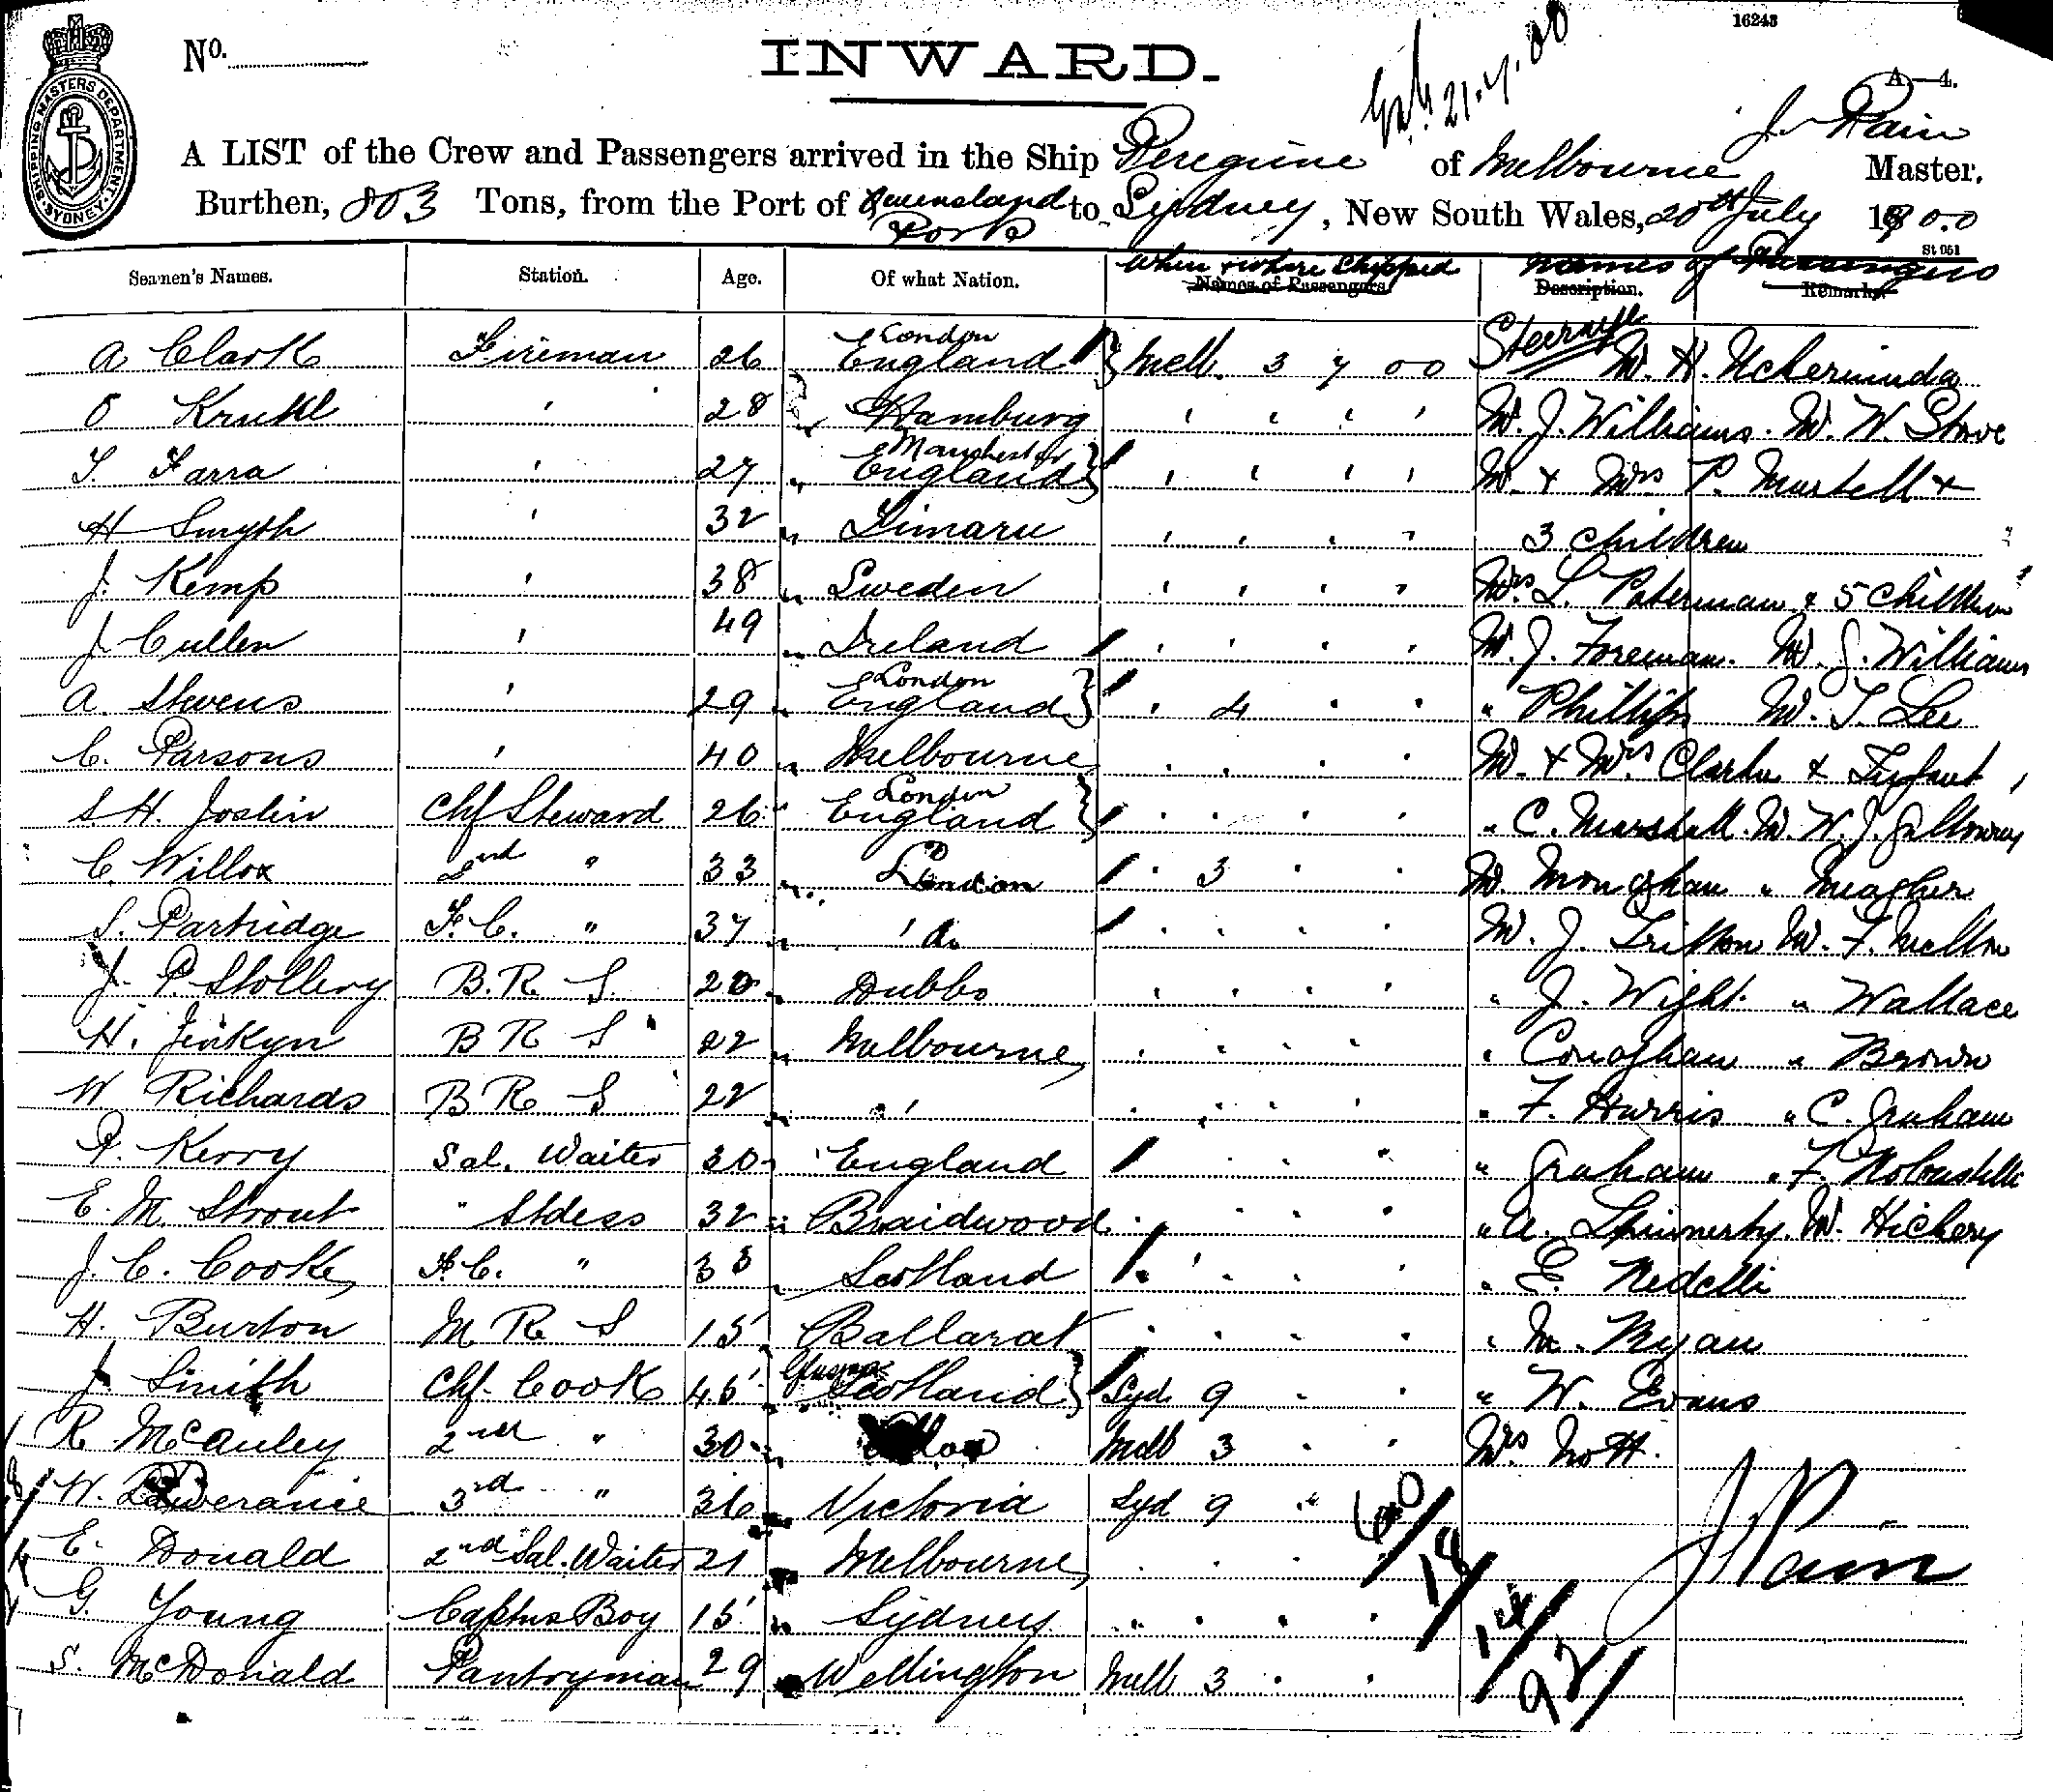 16243
No.
INWARD.
21.7.00
A—4.
J. Pain
A LIST of the Crew and Passengers arrived in the Ship Peregrine of Melbourne Master.
Burthen, 803 Tons, from the Port of Queensland Ports to Sydney, New South Wales, 20th July 1900
SHIPPING MASTERS DEPARTMENT. SYDNEY.
St 051
Seamen's Names. Station. Age. Of what Nation. When & where Shipped Names of Passengers
Names of Passengers. Description. Remarks.
Steerage
A Clark Fireman 26 London England Melb. 3 7 00 Mr. H.
O ' 28 Hamburg ' ' ' ' Mr. J. Williams. Mr. W. Stove
T. Farra ' 27 " Manchester England ' ' ' ' Mr. & Mrs P. Martell &
H Smyth ' 32 " Timaru ' ' ' ' 3 Children
J. Kemp ' 38 " Sweden ' ' ' ' Mrs. L. Paterman & 5 Children
J. Cullen ' 49 " Ireland ' ' ' ' Mr. J. Foreman. Mr. J. Williams
A. Stevens ' 29 " London England ' 4 ' ' " Phillips Mr. T. Lee
C. Parsons ' 40 " Melbourne ' ' ' ' Mr. & Mrs Clarke & Infant
S. H. Joslin Chf Steward 26 " London England ' ' ' ' " C. Marshall. Mr. W. J. Galloway
C. Willox 2nd " 33 " London ' 3 ' ' Mr. Monaghan " Meagher
S. Partridge F.C. " 37 " ' ' ' ' Mr. J. Mr. F. Mellon
J. P. Stollery B.R. S. 20 " Dubbo ' ' ' ' " J. Wight. " Wallace
H. Jenkyn B R S 22 " Melbourne ' ' ' ' " Conaghan " Brown
W Richards B R S 22 " " ' ' ' ' " F. Harris " C. Graham
P. Kerry Sal. Waiter 30 England ' ' ' " Graham " F.
E. M. Strout " Stdess 32 " Braidwood ' ' ' ' " A. Mr. Hickery
J. C. Cooke F.C. " 33 Scotland ' ' ' ' " E. Nedelli
H. Burton M R S 15 Ballarat ' ' ' ' " M. Ryan
J. Smith Chf. Cook 45 Scotland Syd 9 ' ' " W. Evans
R. McAuley 2nd " 30 " Melb 3 ' ' Mrs Nott.
W. 3rd " 36 Victoria Syd 9 "
E. Donald 2nd Sal. Waiter 21 Melbourne ' ' '
G. Young Captns Boy 15 " Sydney " ' ' '
S. McDonald Pantryman 29 Wellington Melb 3 ' '
60/ 18/ 14/ 92/
J Pain